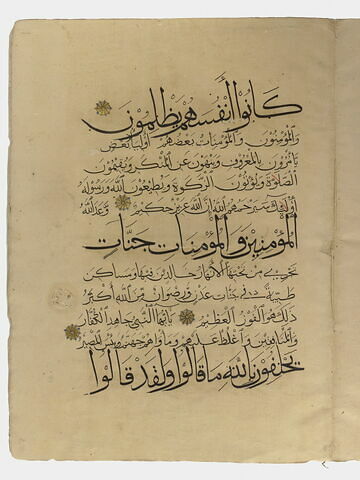 كَانُوا أَنْفُسَهُمْ يَظْلِمُونَ
وَالْمُؤْمِنُونَ وَالْمُؤْمِنَاتُ بَعْضُهُمْ أَوْلِيَاءُ بَعْضٍ
يَأْمُرُونَ بِالْمَعْرُوفِ وَيَنْهَوْنَ عَنِ الْمُنْكَرِ وَيُقِيمُونَ
الصَّلَوٰةَ وَيُؤْتُونَ الزَّكَوٰةَ وَيُطِيعُونَ اللهَ وَرَسُولَهُ
أُولَٰئِكَ سَيَرْحَمُهُمُ اللهُ إِنَّ اللهَ عَزِيزٌ حَكِيمٌ وَعَدَ اللهُ
الْمُؤْمِنِينَ وَالْمُؤْمِنَاتِ جَنَّاتٍ
تَجْرِي مِنْ تَحْتِهَا الْأَنْهَارُ خَالِدِينَ فِيهَا وَمَسَاكِنَ
طَيِّبَةً فِي جَنَّاتِ عَدْنٍ وَرِضْوَانٌ مِنَ اللهِ أَكْبَرُ
ذَٰلِكَ هُوَ الْفَوْزُ الْعَظِيمُ يَا أَيُّهَا النَّبِيُّ جَاهِدِ الْكُفَّارَ
وَالْمُنَافِقِينَ وَاغْلُظْ عَلَيْهِمْ وَمَأْوَاهُمْ جَهَنَّمُ وَبِئْسَ الْمَصِيرُ
يَحْلِفُونَ بِاللهِ مَا قَالُوا وَلَقَدْ قَالُوا